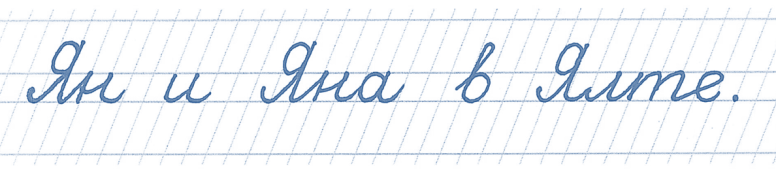 Ян и Яна в Ялте.